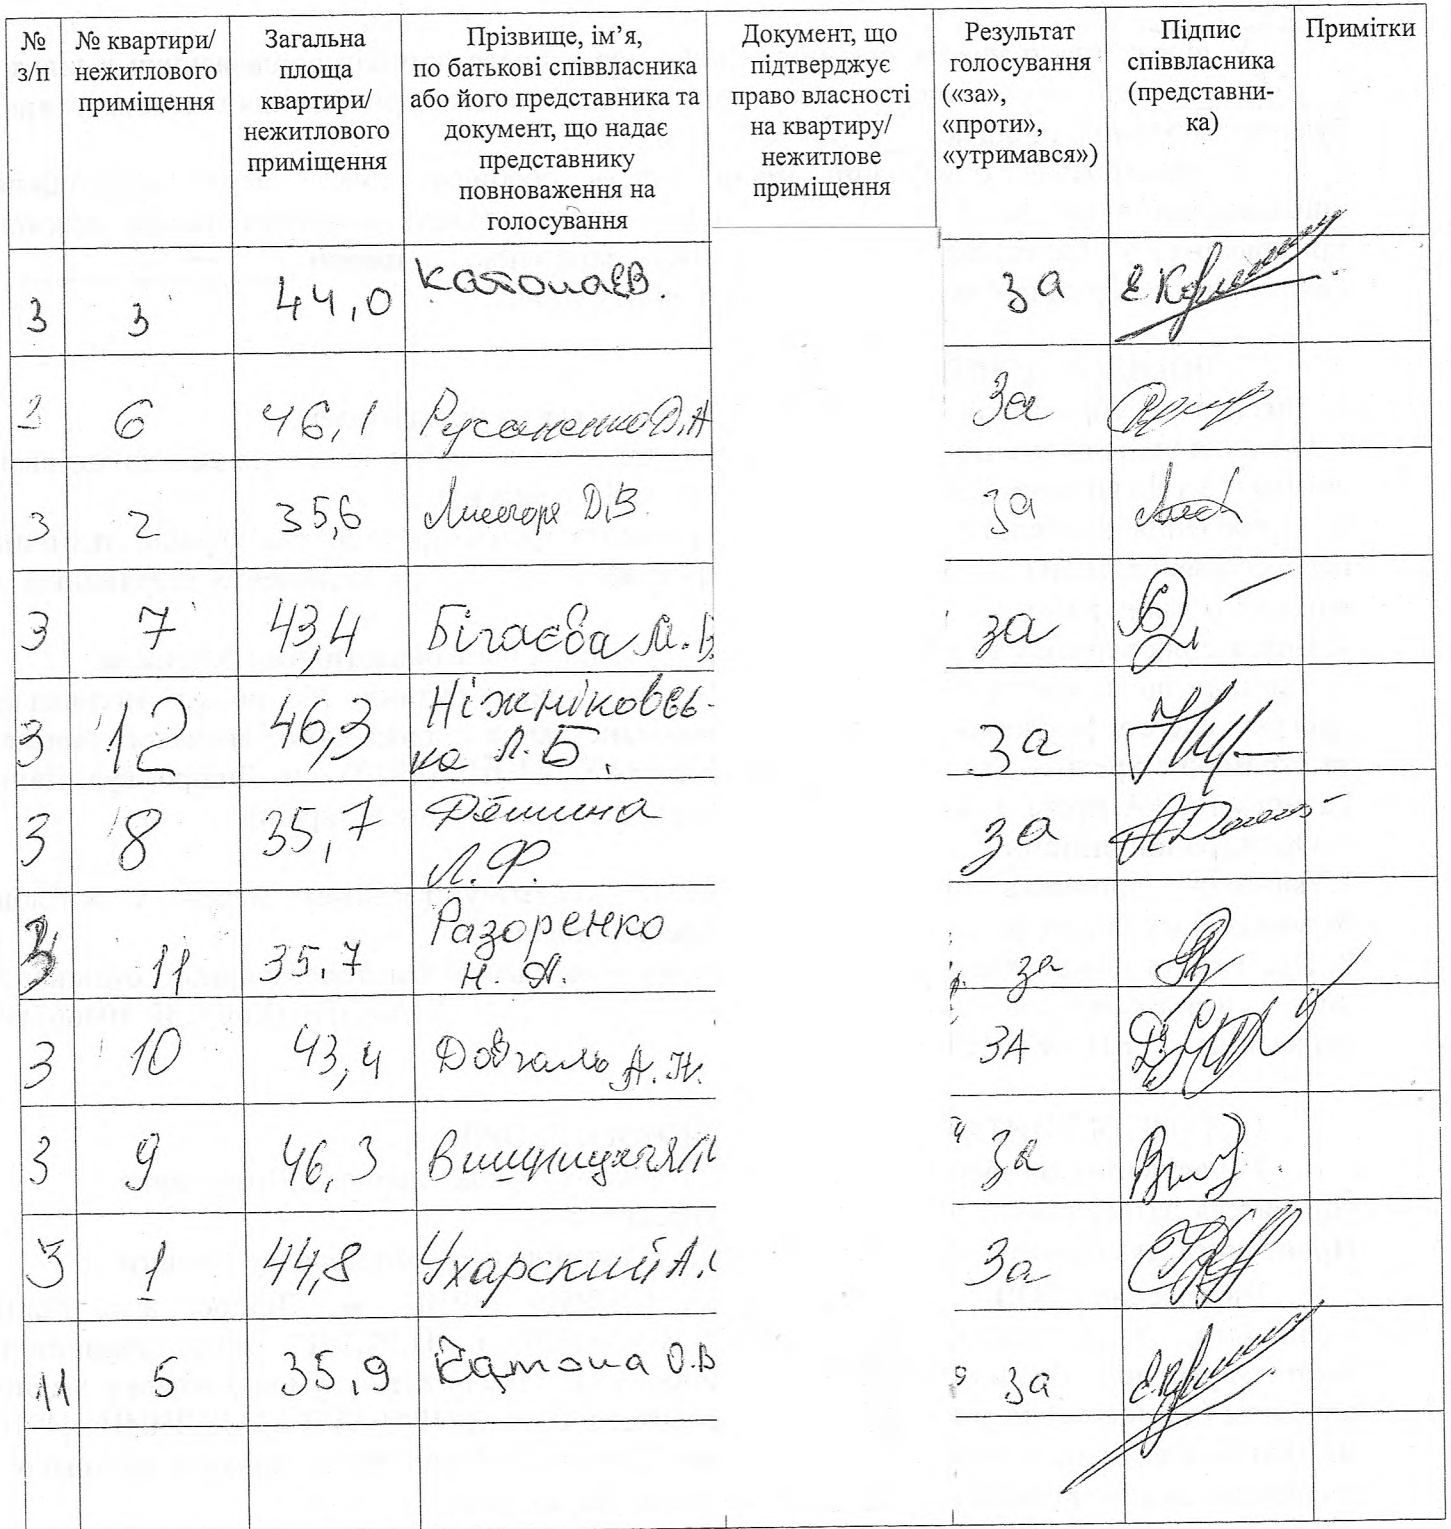 № з/п
№ квартири/ нежитлового приміщення
Загальна площа квартири/ нежитлового приміщення
Прізвище, ім’я, по батькові співвласника або його представника та документ, що надає представнику повноваження на голосування
Документ, що підтверджує право власності на квартиру/ нежитлове приміщення
Результат голосування («за», «проти», «утримався»)
Підпис співвласника (представни-ка)
Примітки
3 3 44,0 за
6 46,1 Русаненко Д.А За
3 2 35,6 Лисогоря Д.В. за
3 7 43,4 Бігаєва Л.В за
3 12 46,3 Ніжніковсь-
ка Л.Б. за
3 8 35,7 Дёшина
Л.Ф. за
3 11 35,7 Разоренко
Н.А. за
3 10 43,4 Довгаль А.Н. ЗА
3 9 46,3 За
3 1 44,8 Ухарский А. За
11 5 35,9 Катоша О.В за